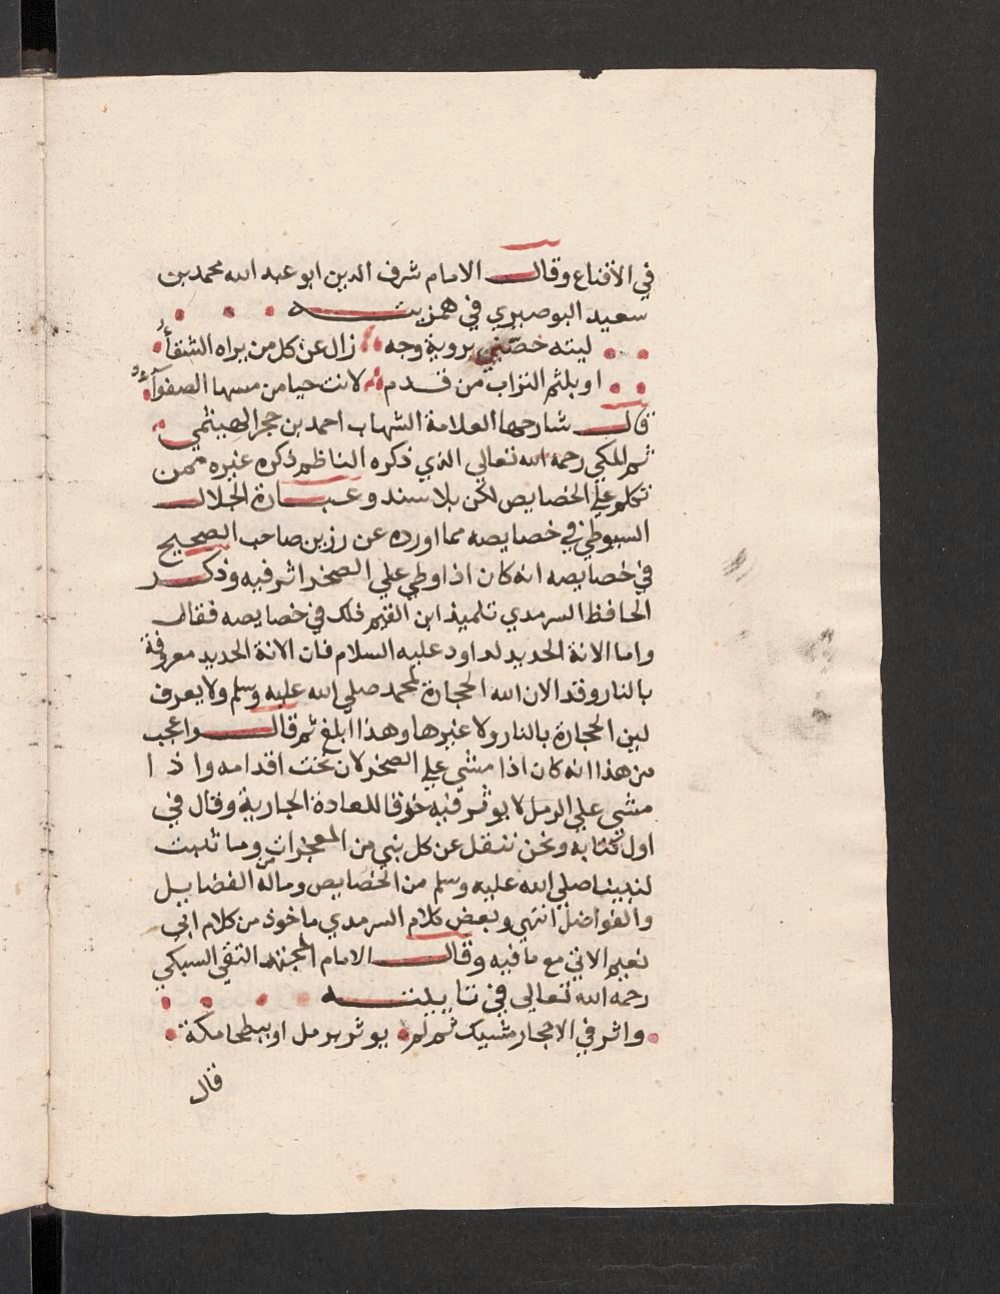 في الاقناع وقال الامام شرف الدين ابو عبد الله محمد بن
سعيد البوصيري في همزيته
ليته خصني بروية وجه زال عن كل من يراه الشقآء
او بلثم التراب من قدم لانت حيا من مسها الصفوآء
قال شارحها العلامة الشهاب احمد بن حجر الهيتمي
ثم المكي رحمه الله تعالى الذي ذكره الناظم ذكره غيره ممن
تكلم علي الخصايص لكن بلا سند وعبارة الجلال
السيوطي في خصايصه مما اورده عن رزين صاحب الصحيح
في خصايصه انه كان اذا وطي علي الصخر اثر فيه وذكر
الحافظ السرمدي تلميذ ابن القيم ذلك في خصايصه فقال
واما الانة الحديد لداود عليه السلام فان الانة الحديد معروفة
بالنار وقد الان الله الحجارة لمحمد صلي الله عليه وسلم ولا يعرف
لين الحجارة بالنار ولا غيرها وهذا ابلغ ثم قال واعجب
من هذا انه كان اذا مشي علي الصخر لان تحت اقدامه واذا
مشي علي الرمل لا يوثر فيه خرقا للعادة الجارية وقال في
اول كتابه ونحن ننقل عن كل نبي من المعجزات وما ثبت
لنبينا صلي الله عليه وسلم من الخصايص وماله من الفضايل
والفواضل انتهي وبعض كلام السرمدي ماخوذ من كلام ابي
نعيم الاتي مع ما فيه وقال الامام المجتهد التقي السبكي
رحمه الله تعالى في تاييته
واثر في الاحجار مشيك ثم لم يوثر برمل او ببطحا مكة
قال